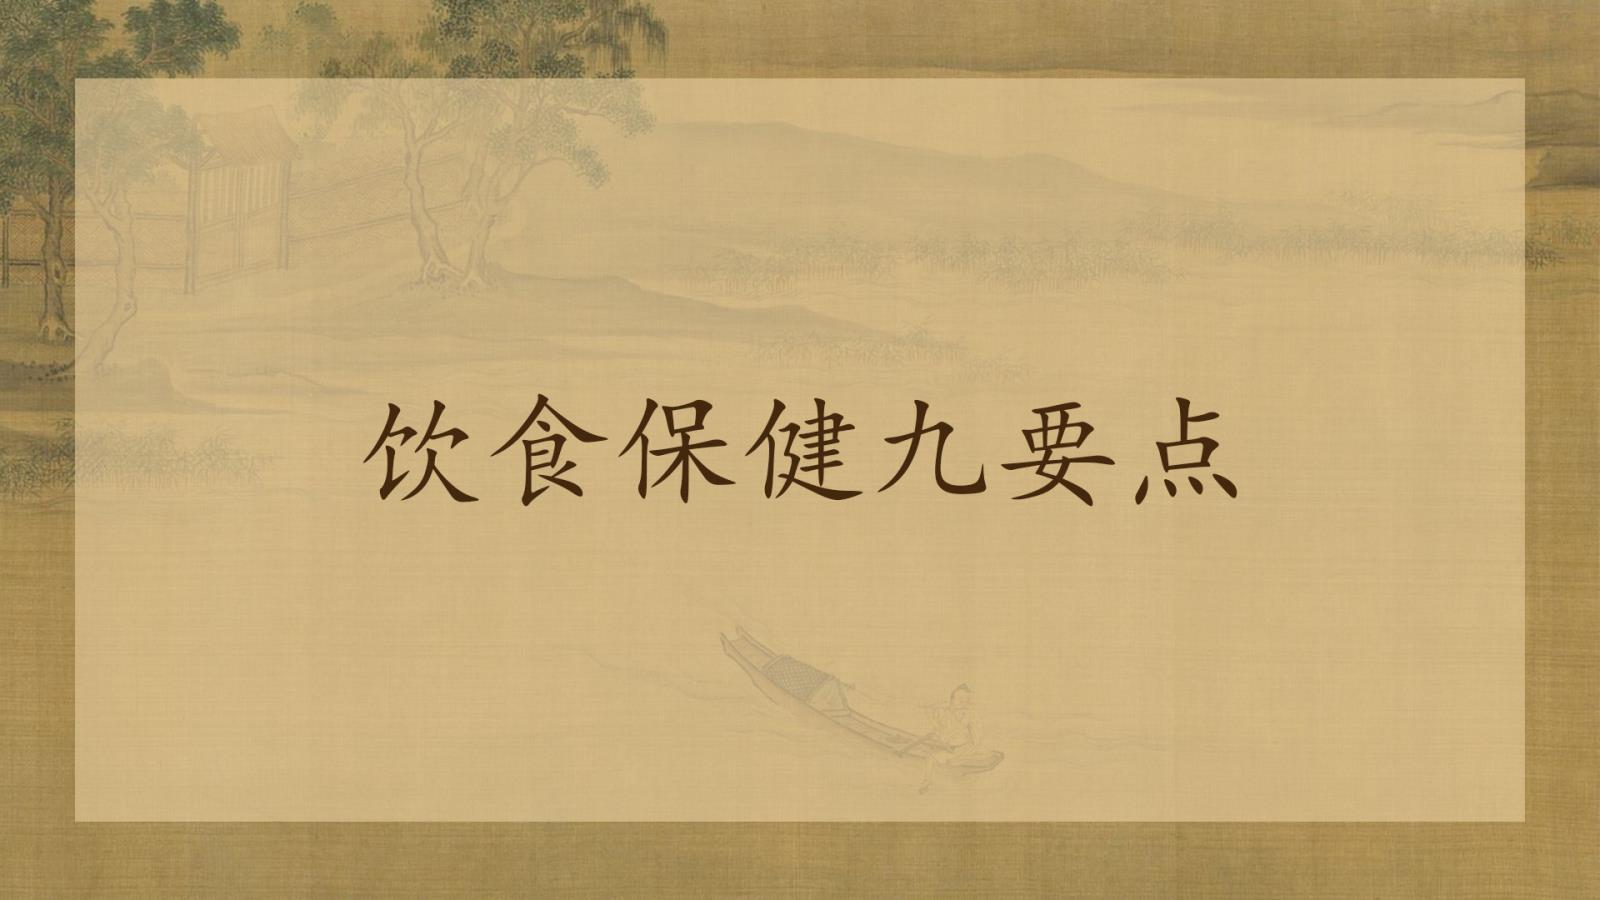 饮食保健九要点